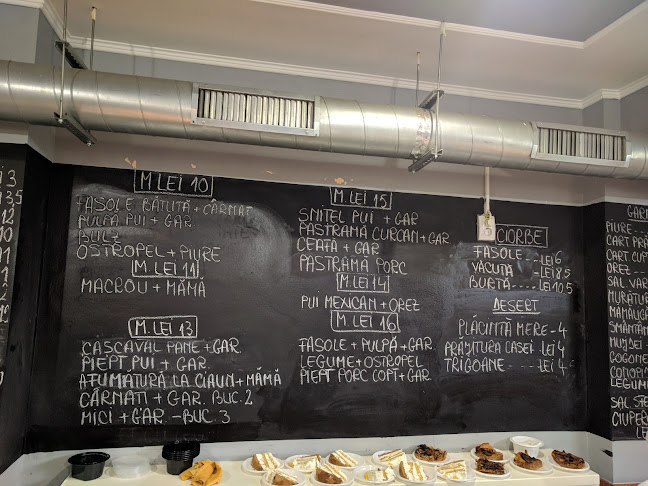 3
135
12
10
M. LEI 10
FASOLE BĂTUTĂ + CÂRNAȚ
PULPĂ PUI + GAR.
BULZ
OSTROPEL + PIURE
M. LEI 11
MACROU + MĂMĂ
M. LEI 13
CAȘCAVAL PANE + GAR.
PIEPT PUI + GAR.
AFUMĂTURĂ LA CIAUN + MĂMĂ
CÂRNAȚI + GAR. BUC. 2
MICI + GAR. - BUC. 3
M. LEI 15
ȘNIȚEL PUI + GAR
PASTRAMĂ CURCAN + GAR
CEAFĂ + GAR
PASTRAMĂ PORC
M. LEI 14
PUI MEXICAN + OREZ
M. LEI 16
FASOLE + PULPĂ + GAR.
LEGUME + OSTROPEL
PIEPT PORC COPT + GAR.
CIORBE
FASOLE --- LEI 6
VĂCUȚĂ --- LEI 8.5
BURTĂ ---- LEI 10.5
DESERT
PLĂCINTĂ MERE - 4
PRĂJITURA CASEI LEI 4
TRIGOANE --- LEI 4
GAR
PIURE
CART PRĂ
CART CUP
OREZ
SAL VAR
MURĂTUR
MĂMĂLIG
SMÂNTÂN
COGONE
CONOPI
LEGUME
CIUPE